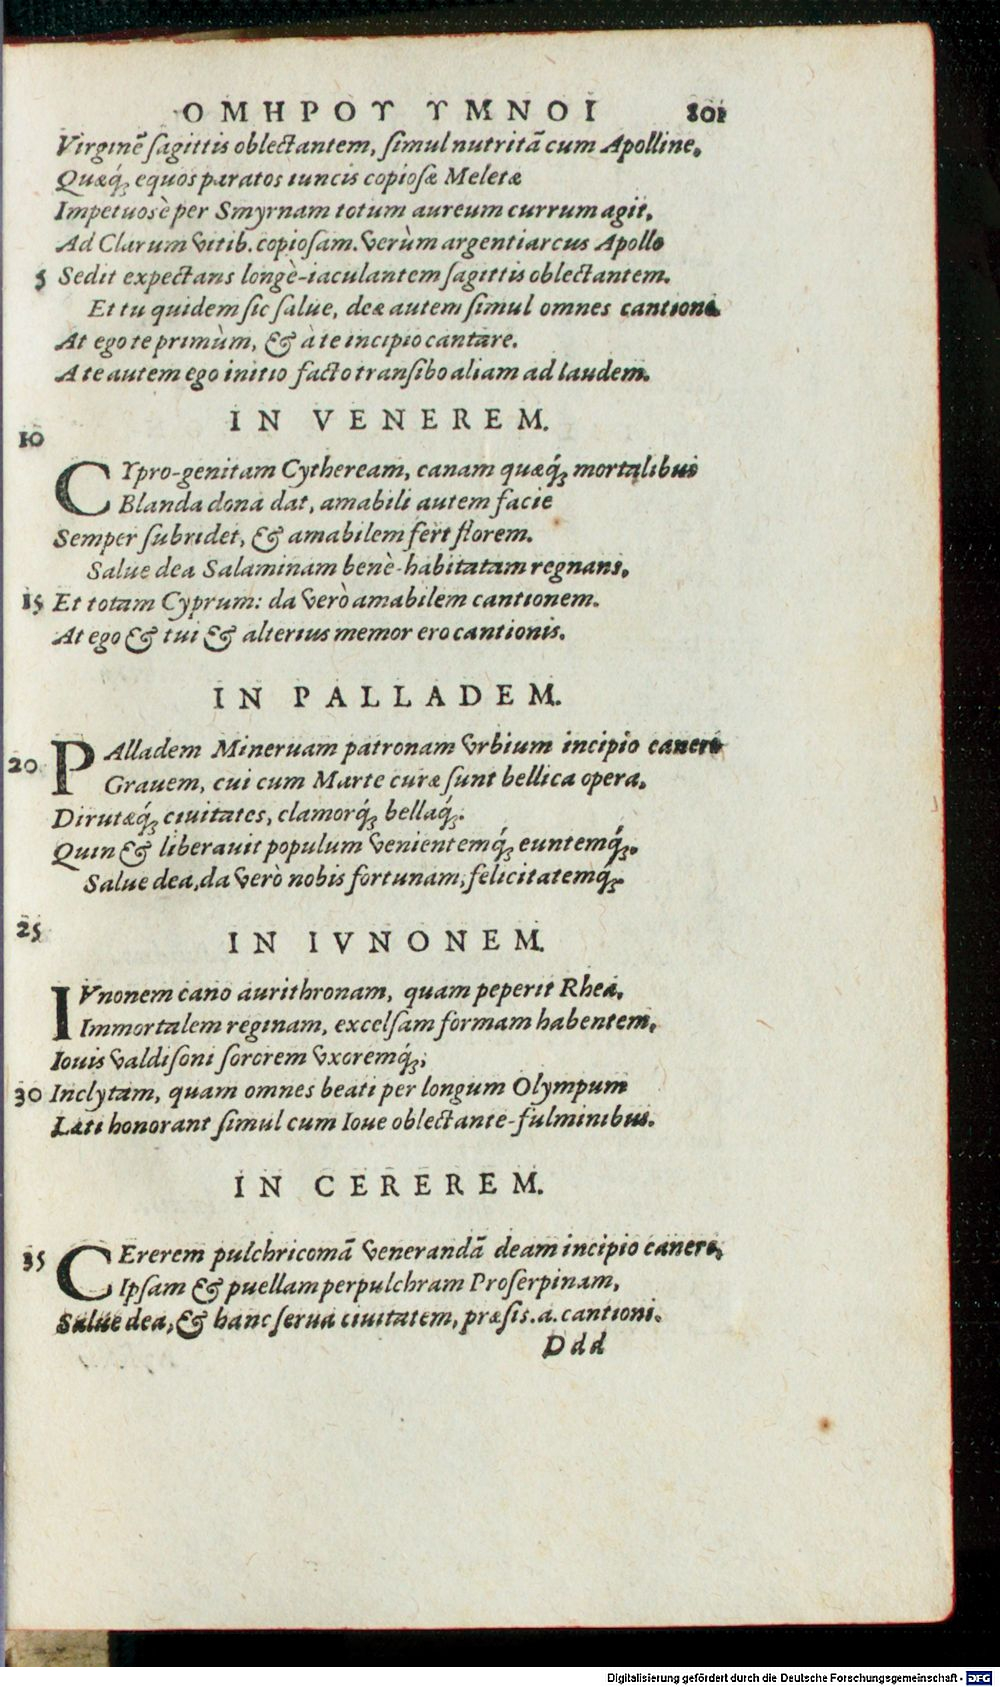 ΟΜΗΡΟΥ ΥΜΝΟΙ 801
Virginẽ sagittis oblectantem, simul nutritã cum Apolline,
Quæq́; equos paratos iuncis copiosæ Meletæ
Impetuosè per Smyrnam totum aureum currum agit,
Ad Clarum vitib. copiosam. verùm argentiarcus Apollo
5 Sedit expectans longè-iaculantem sagittis oblectantem.
Et tu quidem sic salue, deæ autem simul omnes cantione.
At ego te primùm, & à te incipio cantare.
A te autem ego initio facto transibo aliam ad laudem.
IN VENEREM.
10
CYpro-genitam Cytheream, canam quæq́; mortalibus
Blanda dona dat, amabili autem facie
Semper subridet, & amabilem fert florem.
Salue dea Salaminam benè-habitatam regnans,
15 Et totam Cyprum: da verò amabilem cantionem.
At ego & tui & alterius memor ero cantionis.
IN PALLADEM.
PAlladem Mineruam patronam vrbium incipio canere
20 Grauem, cui cum Marte curæ sunt bellica opera,
Dirutæq́; ciuitates, clamorq́; bellaq́;.
Quin & liberauit populum venientemq́; euntemq́;.
Salue dea, da verò nobis fortunam, felicitatemq́;.
25
IN IVNONEM.
IVnonem cano aurithronam, quam peperit Rhea,
Immortalem reginam, excelsam formam habentem,
Iouis valdisoni sororem vxoremq́;,
30 Inclytam, quam omnes beati per longum Olympum
Læti honorant simul cum Ioue oblectante-fulminibus.
IN CEREREM.
35 CErerem pulchricomã venerandã deam incipio canere,
Ipsam & puellam perpulchram Proserpinam,
Salue dea, & hanc serua ciuitatem, præsis.a.cantioni.
Ddd
Digitalisierung gefördert durch die Deutsche Forschungsgemeinschaft - DFG